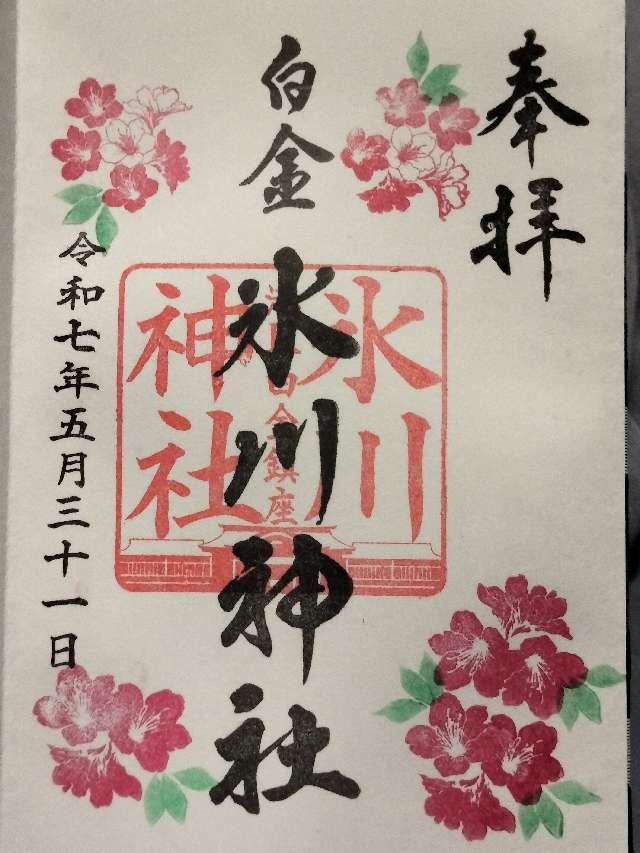 奉拝
白金
氷川神社
氷川
神社
白金鎮座
令和七年五月三十一日